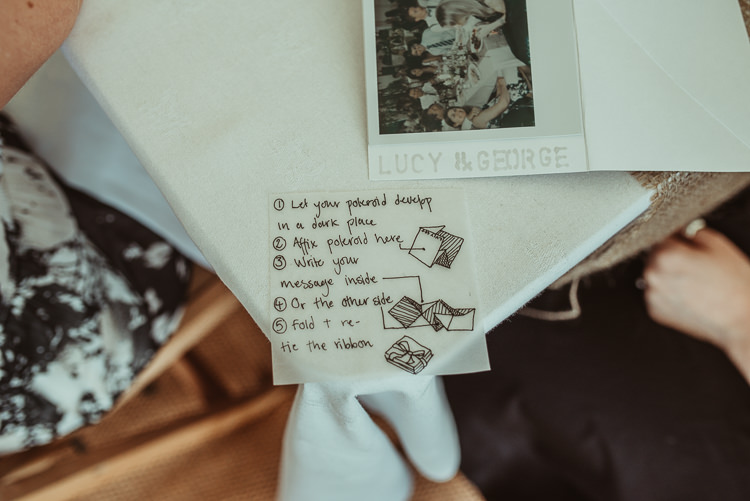 LUCY & GEORGE
① Let your poleroid develop
in a dark place
② Affix poleroid here
③ Write your
message inside
④ Or the other side
⑤ Fold + re-
tie the ribbon